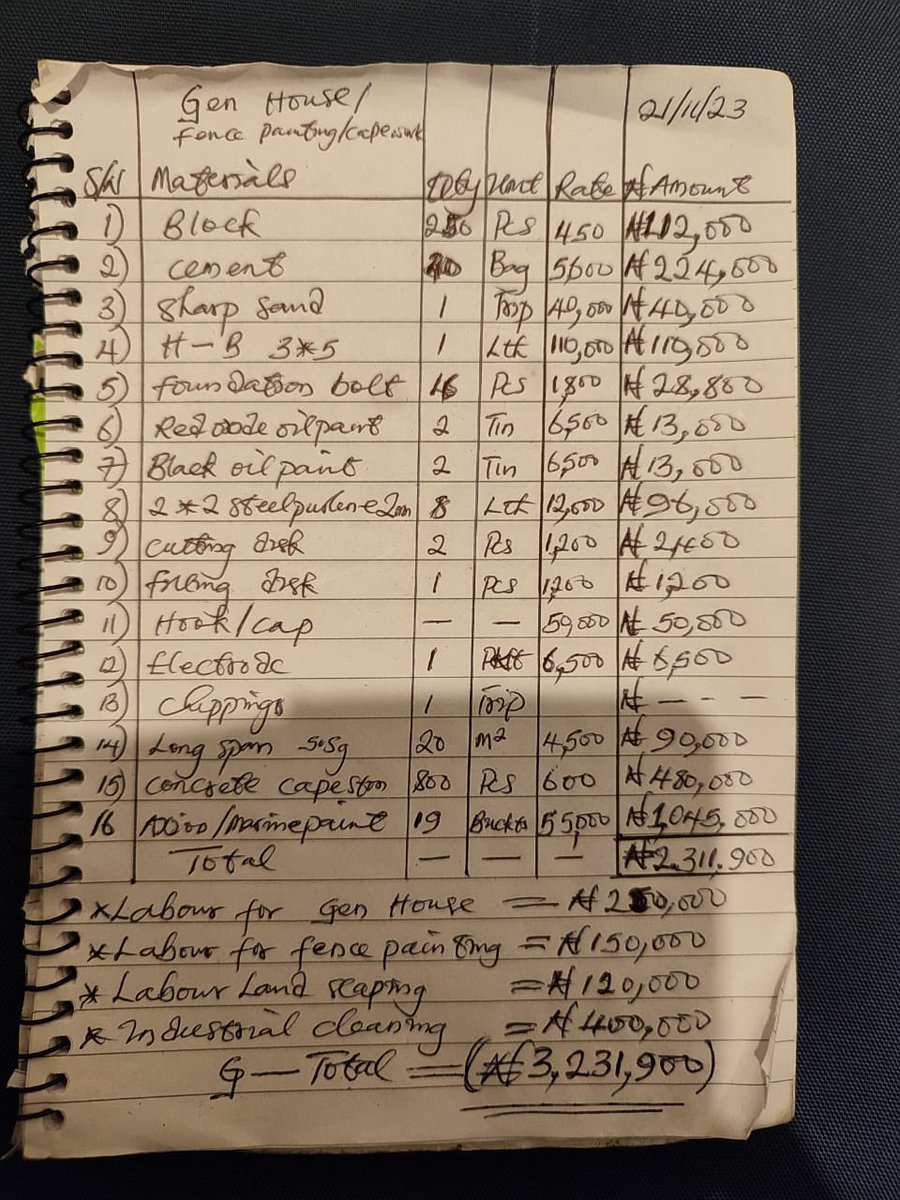 Gen House/ 21/11/23
fence painting/capework
S/N Materials Qty Unit Rate ₦ Amount
1) Block 250 Pcs 450 ₦112,000
2) cement 40 Bag 5600 ₦224,000
3) Sharp sand 1 Trip 40,000 ₦40,000
4) H-B 3*5 1 Lth 110,000 ₦110,000
5) foundation bolt 16 Pcs 1,800 ₦28,800
6) Red oxide oilpaint 2 Tin 6,500 ₦13,000
7) Black oil paint 2 Tin 6,500 ₦13,000
8) 2*2 steelpurlene 2mm 8 Lth 12,000 ₦96,000
9) cutting disk 2 Pcs 1,200 ₦2,400
10) filing disk 1 Pcs 1,200 ₦1,200
11) Hook/cap — — 50,000 ₦50,000
12) Electrode 1 Pkt 6,500 ₦6,500
13) Chippings 1 Trip ₦ — - - —
14) Long span 20 m² 4,500 ₦90,000
15) concrete capeston 800 Pcs 600 ₦480,000
16 /Marine paint 19 Buckts 55,000 ₦1,045,000
Total — — — ₦2.311.900
*Labour for Gen House = ₦250,000
*Labour for fence painting = ₦150,000
* Labour Land scaping = ₦120,000
* Industrial cleaning = ₦400,000
G — Total = (₦3,231,900)